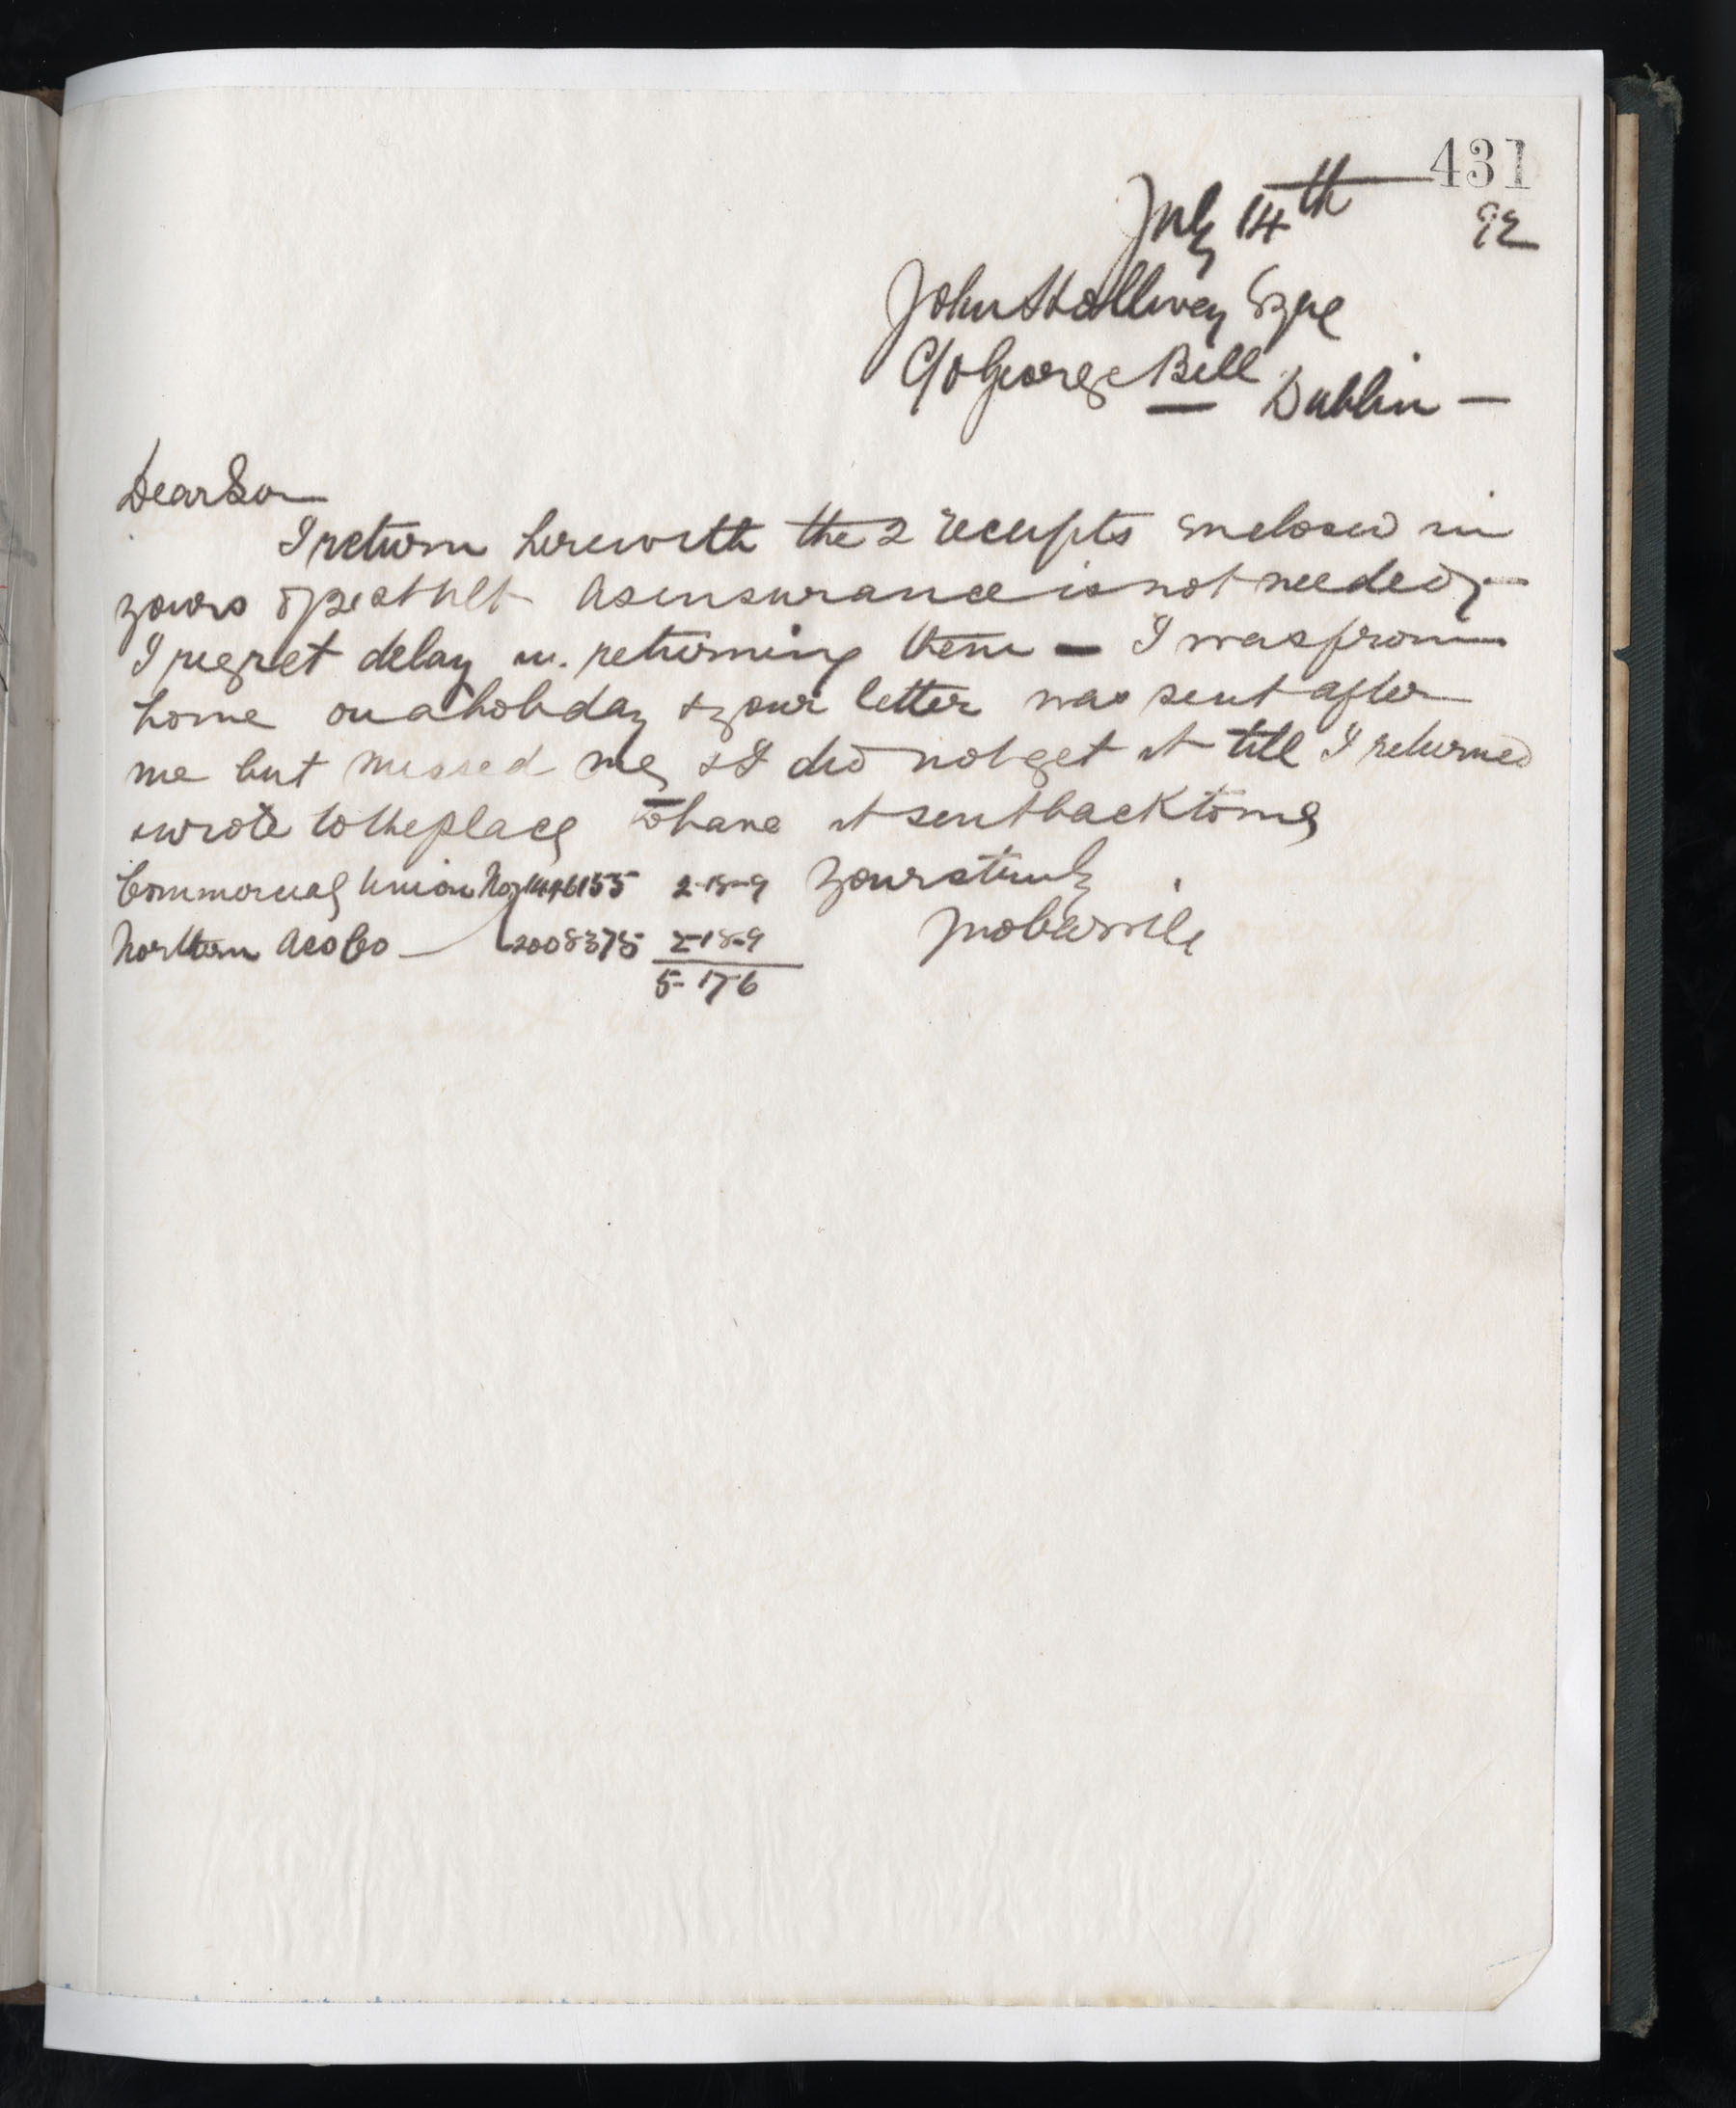 431
July 14th 92
John Halliwey Esqre
C/o George Bell
Dublin —
Dear Sir
I return herewith the 2 receipts enclosed in
yours of ult As insurance is not needed,—
I regret delay in returning them — I was from
home on a holiday & your letter was sent after
me but missed me, & I did not get it till I returned
& wrote to the place to have it sent back to me
Commercial Union No 1446155 2-18-9 Yours truly
Northern Ass Co — 2008375 2-18-9
5-17-6